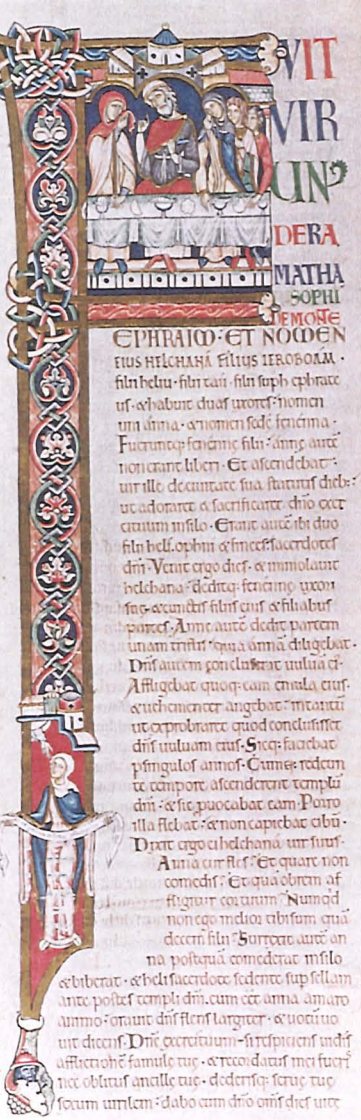 VIT
VIR
UN
DERA
MATHA
SOPHI
DE MONTE
EPHRAIM · ET NOMEN
EIUS HELCHANA FILIUS IEROBOAM ·
filii heliu · filii tau · filii suph ephrate
us · & habuit duas uxores · nomen
uni anna · & nomen sedē fenenna ·
Fueruntq; fenenne filii · anne autē
non erant liberi · Et ascendebat
uir ille de ciuitate sua statutis dieb;
ut adoraret & sacrificaret dn̄o exer
cituum in silo · Erant autē ibi duo
filii heli · ophni & finees sacerdotes
dn̄i · Venit ergo dies · & immolauit
helchana · deditq; fenenne uxori
sue · & cunctis filiis eius & filiabus
partes · Anne autē dedit partem
unam tristis · quia annā diligebat ·
Dn̄s autem concluserat uuluā ei ·
Affligebat quoq; eam emula eius ·
& uehementer angebat · intantū
ut exprobraret quod conclusisset
dn̄s uuluam eius · Sicq; faciebat
p singulos annos · Cumq; redeun
te tempore ascenderent templū
dn̄i · & sic puocabat eam · Porro
illa flebat · & non capiebat cibū ·
Dixit ergo ei helchana uir suus ·
Anna cur fles · Et quare non
comedis · Et quā obrem af
fligitur cor tuum · Numqd
non ego melior tibi sum quā
decem filii · Surrexit autē an
na postquā comederat in silo
& biberat · & heli sacerdote sedente sup sellam
ante postes templi dn̄i · cum eēt anna amaro
animo · orauit dn̄m flens largiter · & uotū uo
uit dicens · Dn̄e exercituum · si respiciens uidis
afflictionē famule tue · & recordatus mei fueris
nec oblitus ancille tue · dederisq; serue tue
sexum uirilem · dabo eum dn̄o om̄s dies uite